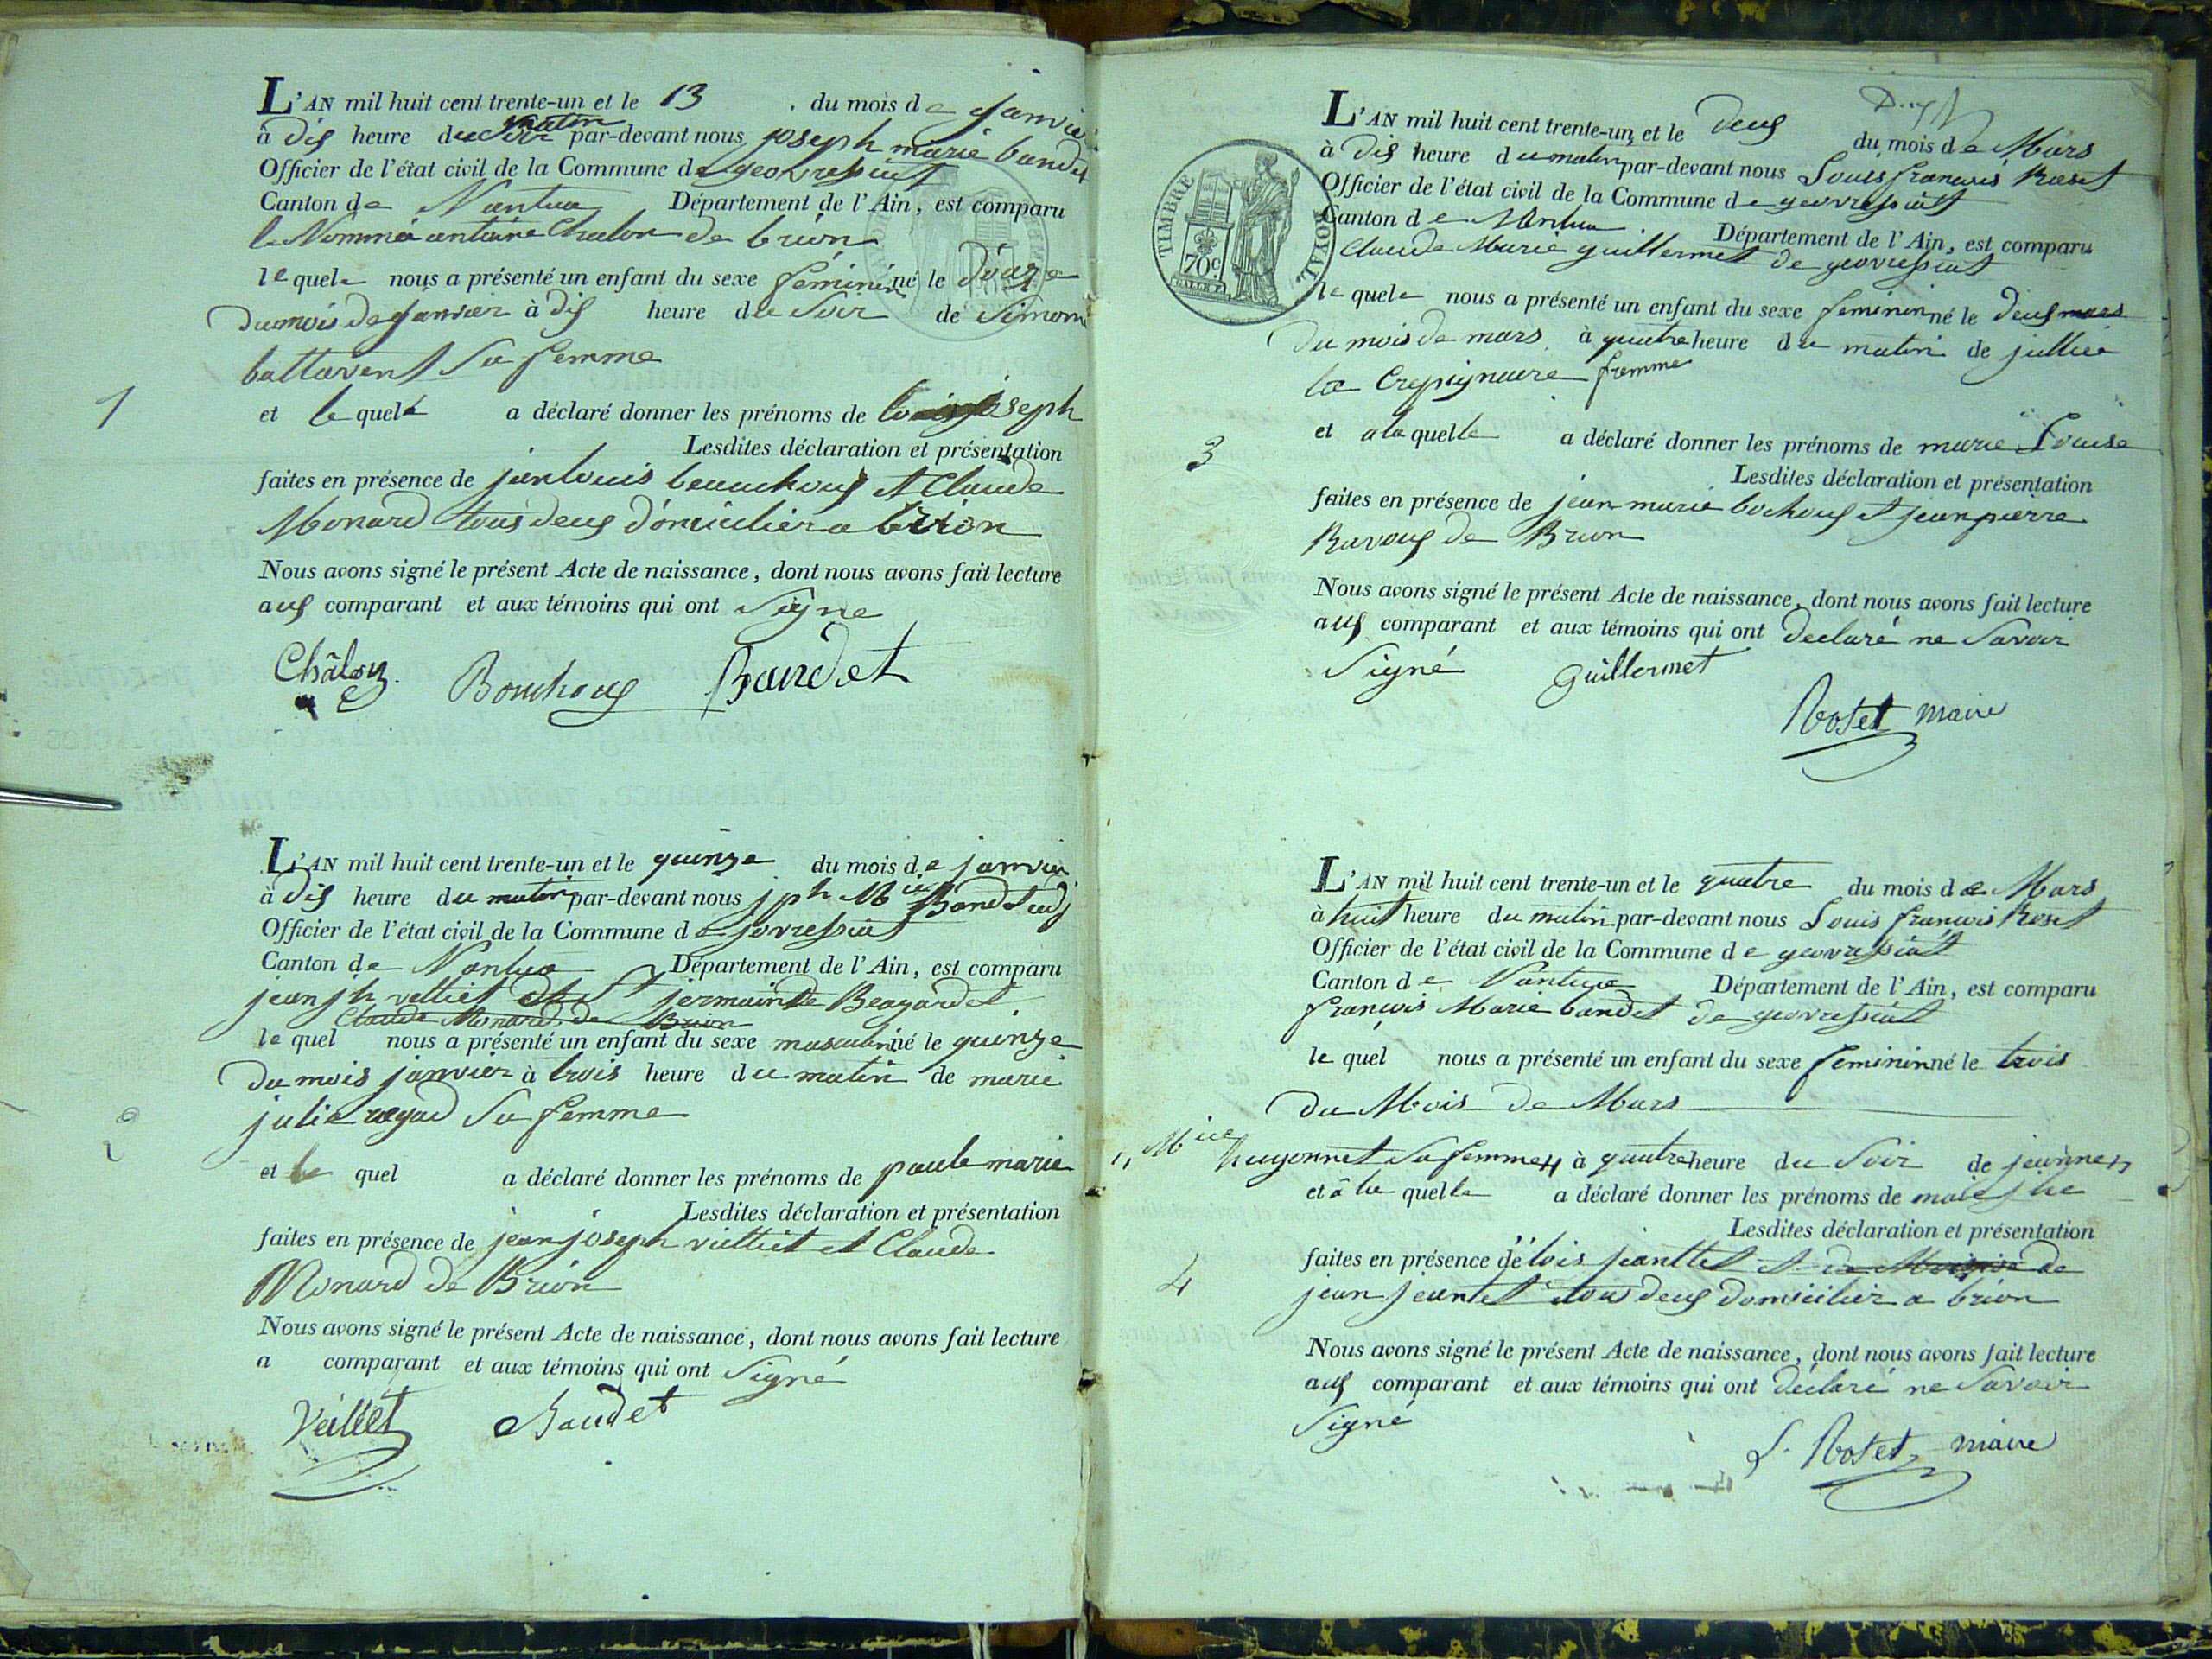 L'AN mil huit cent trente-un et le 13 du mois de janvier
à dis heure du matin par-devant nous joseph marie baudet
Officier de l'état civil de la Commune de geovressiat
Canton de Nantua Département de l'Ain, est comparu
le Nommé antoine Chalon de brion
lequele nous a présenté un enfant du sexe féminin né le douze
du mois de janvier à dis heure du Soir de Simone
battarent Sa femme
1
et le quele a déclaré donner les prénoms de joseph
Lesdites déclaration et présentation
faites en présence de janlouis bouuchous et Claude
Monard tous deus domicilier a brion
Nous avons signé le présent Acte de naissance, dont nous avons fait lecture
aus comparant et aux témoins qui ont Signe
Châlon Bouchous Baudet
L'AN mil huit cent trente-un et le quinze du mois de janvier
à dis heure du matin par-devant nous jph Mie Baudet adj
Officier de l'état civil de la Commune de jovressiat
Canton de Nantua Département de l'Ain, est comparu
jean jh velliet de St jermain de Beagardet
Claude Monard de Brion
le quel nous a présenté un enfant du sexe masculin né le quinze
du mois janvier à trois heure du matin de marie
julie Sa femme
2
et le quel a déclaré donner les prénoms de paule marie
Lesdites déclaration et présentation
faites en présence de jean joseph vielliet et Claude
Monard de Brion
Nous avons signé le présent Acte de naissance, dont nous avons fait lecture
a comparant et aux témoins qui ont Signé
Veillet Baudet
L'AN mil huit cent trente-un et le deus du mois de Mars
à dis heure du matin par-devant nous Louis françois Roset
Officier de l'état civil de la Commune de geovressiat
Canton de Nantua Département de l'Ain, est comparu
Claude Marie guillermet de geovressiat
TIMBRE ROYAL
70c
le quele nous a présenté un enfant du sexe feminin né le deus mars
du mois de mars à quatre heure du matin de jullie
la femme
3
et a la quelle a déclaré donner les prénoms de marie Louise
Lesdites déclaration et présentation
faites en présence de jean marie bochous et jean pierre
Ravous de Brion
Nous avons signé le présent Acte de naissance, dont nous avons fait lecture
aus comparant et aux témoins qui ont declaré ne Savoir
Signé guillermet
Roset maire
L'AN mil huit cent trente-un et le quatre du mois de Mars
à huit heure du matin par-devant nous Louis françois Roset
Officier de l'état civil de la Commune de geovressiat
Canton de Nantua Département de l'Ain, est comparu
françois Marie baudet de geovressiat
le quel nous a présenté un enfant du sexe feminin né le trois
du Mois de Mars
Mie huyonnet Sa femme à quatre heure du Soir de jeanne
et à la quelle a déclaré donner les prénoms de marie jhe
Lesdites déclaration et présentation
faites en présence de lois jeanttet et de
4
jean jeantet tous deus domicilier a brion
Nous avons signé le présent Acte de naissance, dont nous avons fait lecture
aus comparant et aux témoins qui ont déclaré ne Savoir
Signé
L. Roset maire